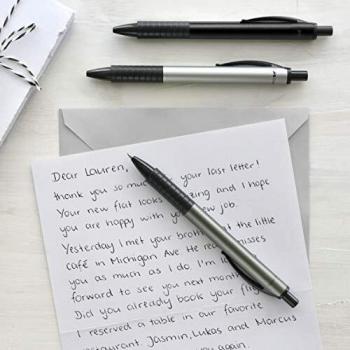 Dear Lauren,
thank you so your last letter!
Your new flat looks and I hope
you are happy with job.
Yesterday I met your the little
café in Michigan Ave. He
you as much as I do. I'm
forward to see you next
Did you already book your
I reserved a table in our favorite
Jasmin, Lukas and Marcus
you again.